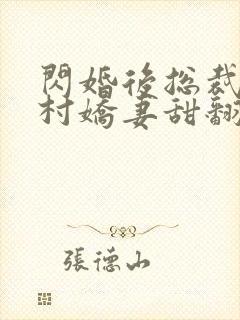 閃婚後總裁
村嬌妻甜翻
張德山